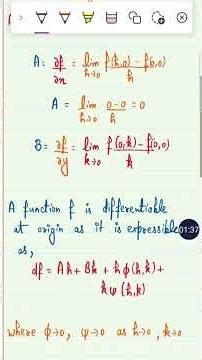 A = ∂f/∂x = lim h→0 f(h,0) - f(0,0) / h
A = lim h→0 0-0 / h = 0
B = ∂f/∂y = lim k→0 f(0,k) - f(0,0) / k
A function f is differentiable
at origin as it is expressible
as,
df = Ah + Bk + h ϕ(h,k) +
k ψ(h,k)
01:37
where ϕ→0, ψ→0 as h→0, k→0